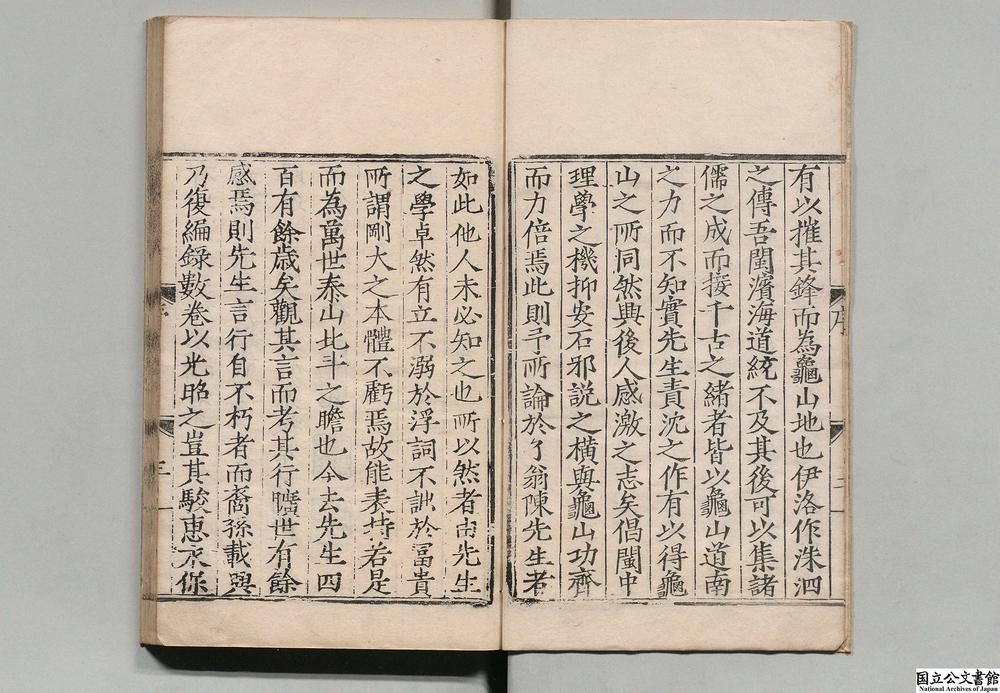 有以摧其鋒而為龜山地也伊洛作洙泗
之傳吾閩濱海道統不及其後可以集諸
儒之成而接千古之緒者皆以龜山道南
之力而不知實先生責沈之作有以得龜
山之所同然興後人感激之志矣倡閩中
理學之機抑安石邪説之橫與龜山功齊
而力倍焉此則予所論於了翁陳先生者
如此他人未必知之也所以然者由先生
之學卓然有立不溺於浮詞不詘於冨貴
所謂剛大之本體不虧焉故能表持若是
而為萬世泰山北斗之瞻也今去先生四
百有餘歳矣觀其言而考其行曠世有餘
感焉則先生言行自不朽者而裔孫載興
乃復編録數卷以光昭之豈其駿惠永保
序
二
序
三
国立公文書館
National Archives of Japan